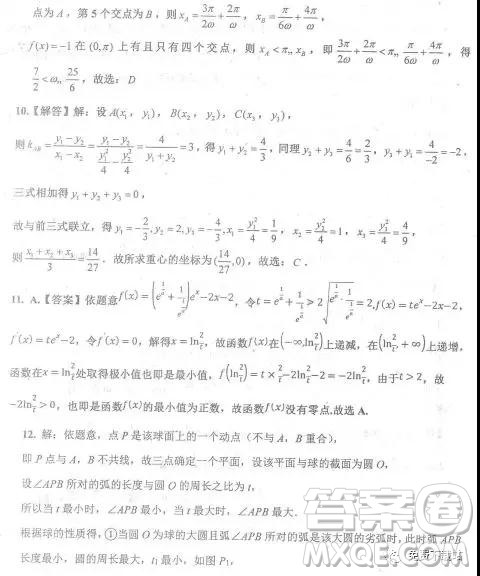 点为 A，第 5 个交点为 B，则 x_A = 3π/2ω + 2π/ω，x_B = π/6ω + 4π/ω，
∵ f(x) = -1 在 (0,π) 上有且只有四个交点，则 x_A < π„ x_B，即 3π/2ω + 2π/ω < π„ π/6ω + 4π/ω，得
7/2 < ω„ 25/6，故选：D
10.【解答】解：设 A(x₁，y₁)，B(x₂，y₂)，C(x₃，y₃)，
则 k_AB = (y₁-y₂)/(x₁-x₂) = (y₁-y₂)/(y₁²/4 - y₂²/4) = 4/(y₁+y₂) = 3，得 y₁+y₂ = 4/3，同理 y₂+y₃ = 4/6 = 2/3，y₃+y₁ = 4/-2 = -2，
三式相加得 y₁+y₂+y₃ = 0，
故与前三式联立，得 y₁ = -2/3, y₂ = 2, y₃ = -4/3, x₁ = y₁²/4 = 1/9，x₂ = y₂²/4 = 1，x₃ = y₃²/4 = 4/9，
则 (x₁+x₂+x₃)/3 = 14/27．故所求重心的坐标为 (14/27,0)，故选：C．
11. A.【答案】依题意 f(x) =
e^x-2x-2，令 t=
=2, f(x) = te^x-2x-2，
f′(x) = te^x-2，令 f′(x) = 0，解得 x = ln 2/t，故函数 f(x) 在 (-∞, ln 2/t) 上递减，在 (ln 2/t, +∞) 上递增，
函数在 x = ln 2/t 处取得极小值也即是最小值，f(ln 2/t) = t × 2/t - 2ln 2/t - 2 = -2ln 2/t，由于 t > 2，故
-2ln 2/t > 0，也即是函数 f(x) 的最小值为正数，故函数 f(x) 没有零点.故选 A.
12. 解：依题意，点 P 是该球面上的一个动点（不与 A，B 重合），
即 P 点与 A，B 不共线，故三点确定一个平面，设该平面与球的截面为圆 O，
设∠APB 所对的弧的长度与圆 O 的周长之比为 t，
所以当 t 最小时，∠APB 最小，当 t 最大时，∠APB 最大。
根据球的性质得，①当圆 O 为球的大圆且弧∠APB 所对的弧是该大圆的劣弧时，此时弧 APB
长度最小，圆的周长最大，t₁ 最小，如图 P₁，
答案圈